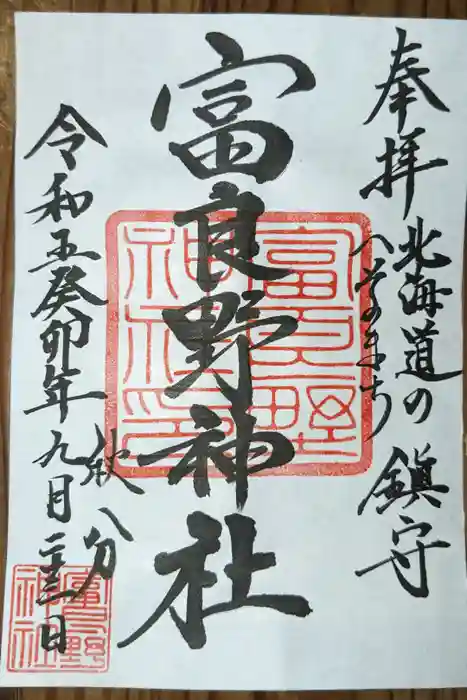 奉拝
北海道の
へそのまち
鎮守
富良野神社
富良野
神社印
秋分
令和五癸卯年九月二十三日
富良野
神社